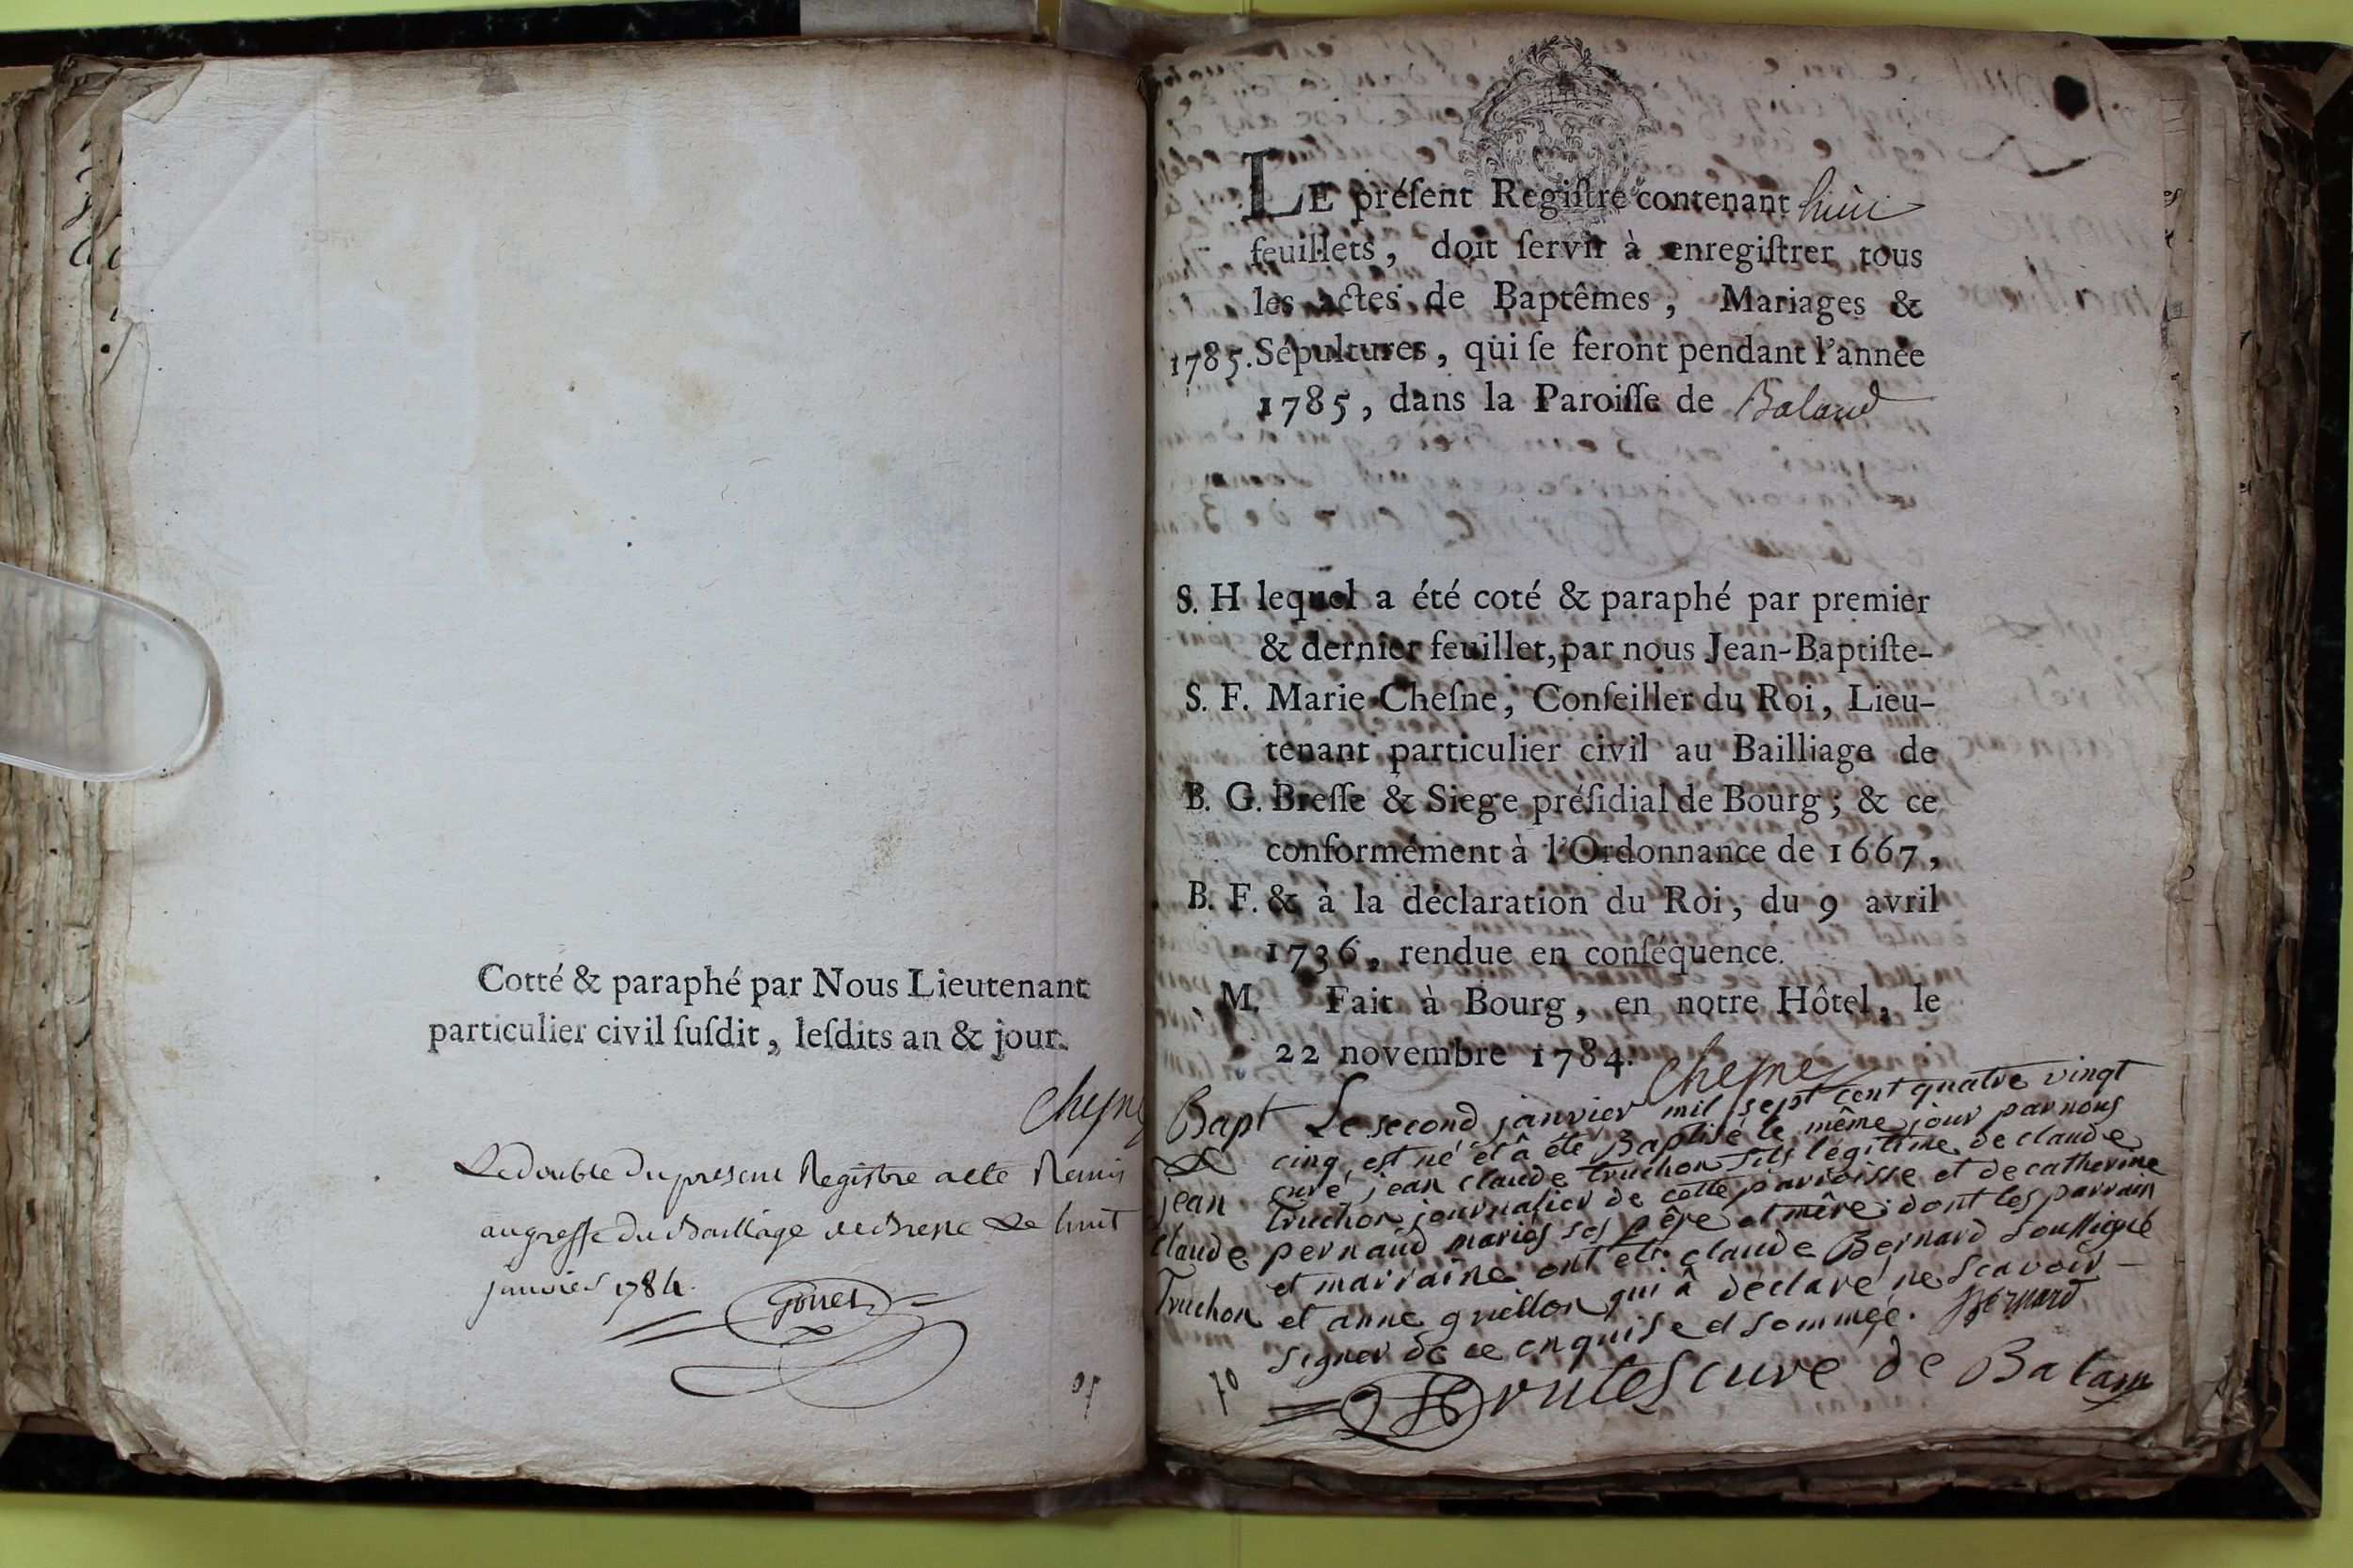 Cotté & paraphé par Nous Lieutenant
particulier civil ſuſdit, leſdits an & jour.
Chesne
Le double du present Registre a eté Remis
au greffe du Bailliage de Bresse Le huit
janvier 1784.
LE préſent Regiſtre contenant huit
feuillets, doit ſervir à enregiſtrer tous
les actes de Baptêmes, Mariages &
1785. Sépultures, qui ſe feront pendant l'année
1785, dans la Paroiſſe de Baland
S. H lequel a été coté & paraphé par premier
& dernier feuillet, par nous Jean-Baptiſte-
S. F. Marie Cheſne, Conſeiller du Roi, Lieu-
tenant particulier civil au Bailliage de
B. G. Breſſe & Siege préſidial de Bourg; & ce
conformément à l'Ordonnance de 1667,
B. F. & à la déclaration du Roi, du 9 avril
1736, rendue en conſéquence.
M. Fait à Bourg, en notre Hôtel, le
22 novembre 1784.
Chesne
Bapt Le second janvier mil sept cent quatre vingt
cinq est né et â eté Baptisé le même jour par nous
curé, jean claude truchon fils légitime de claude
jean truchon journalier de cette parroisse et de catherine
claude pernaud mariés ses pêre et mêre; dont les parrain
et marraine ont eté claude Bernard soussigné
Truchon et anne guillon qui â déclaré ne scavoir
signer de ce enquise et sommée. Bernard
curé de Balan